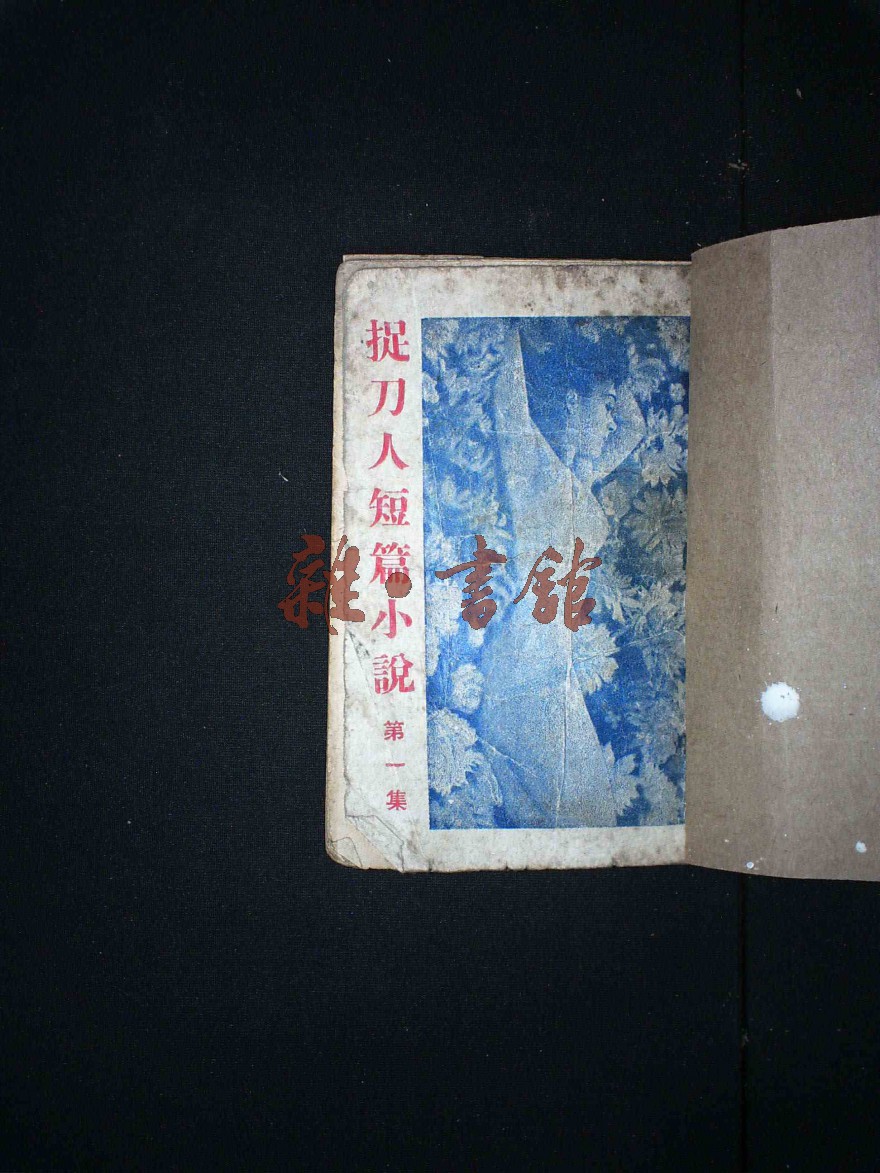 捉刀人短篇小說
第一集
雜·書館